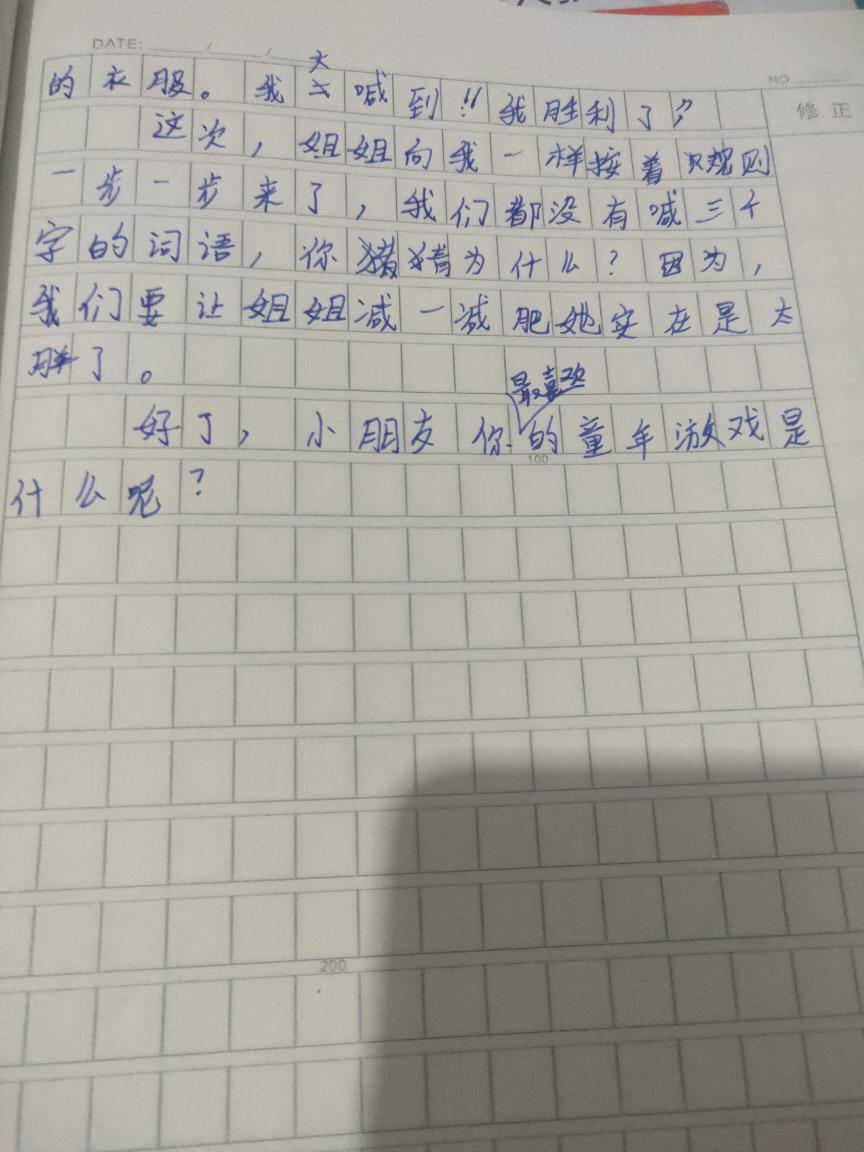 DATE: / /
NO
修正
大
的衣服。我大喊到!!我胜利了”
这次，姐姐向我一样按着规则
一步一步来了，我们都没有喊三个
字的词语，你猪猜为什么？因为，
我们要让姐姐减一减肥她实在是太
胖了。
最喜欢
好了，小朋友你的童年游戏是
100
什么呢？
200